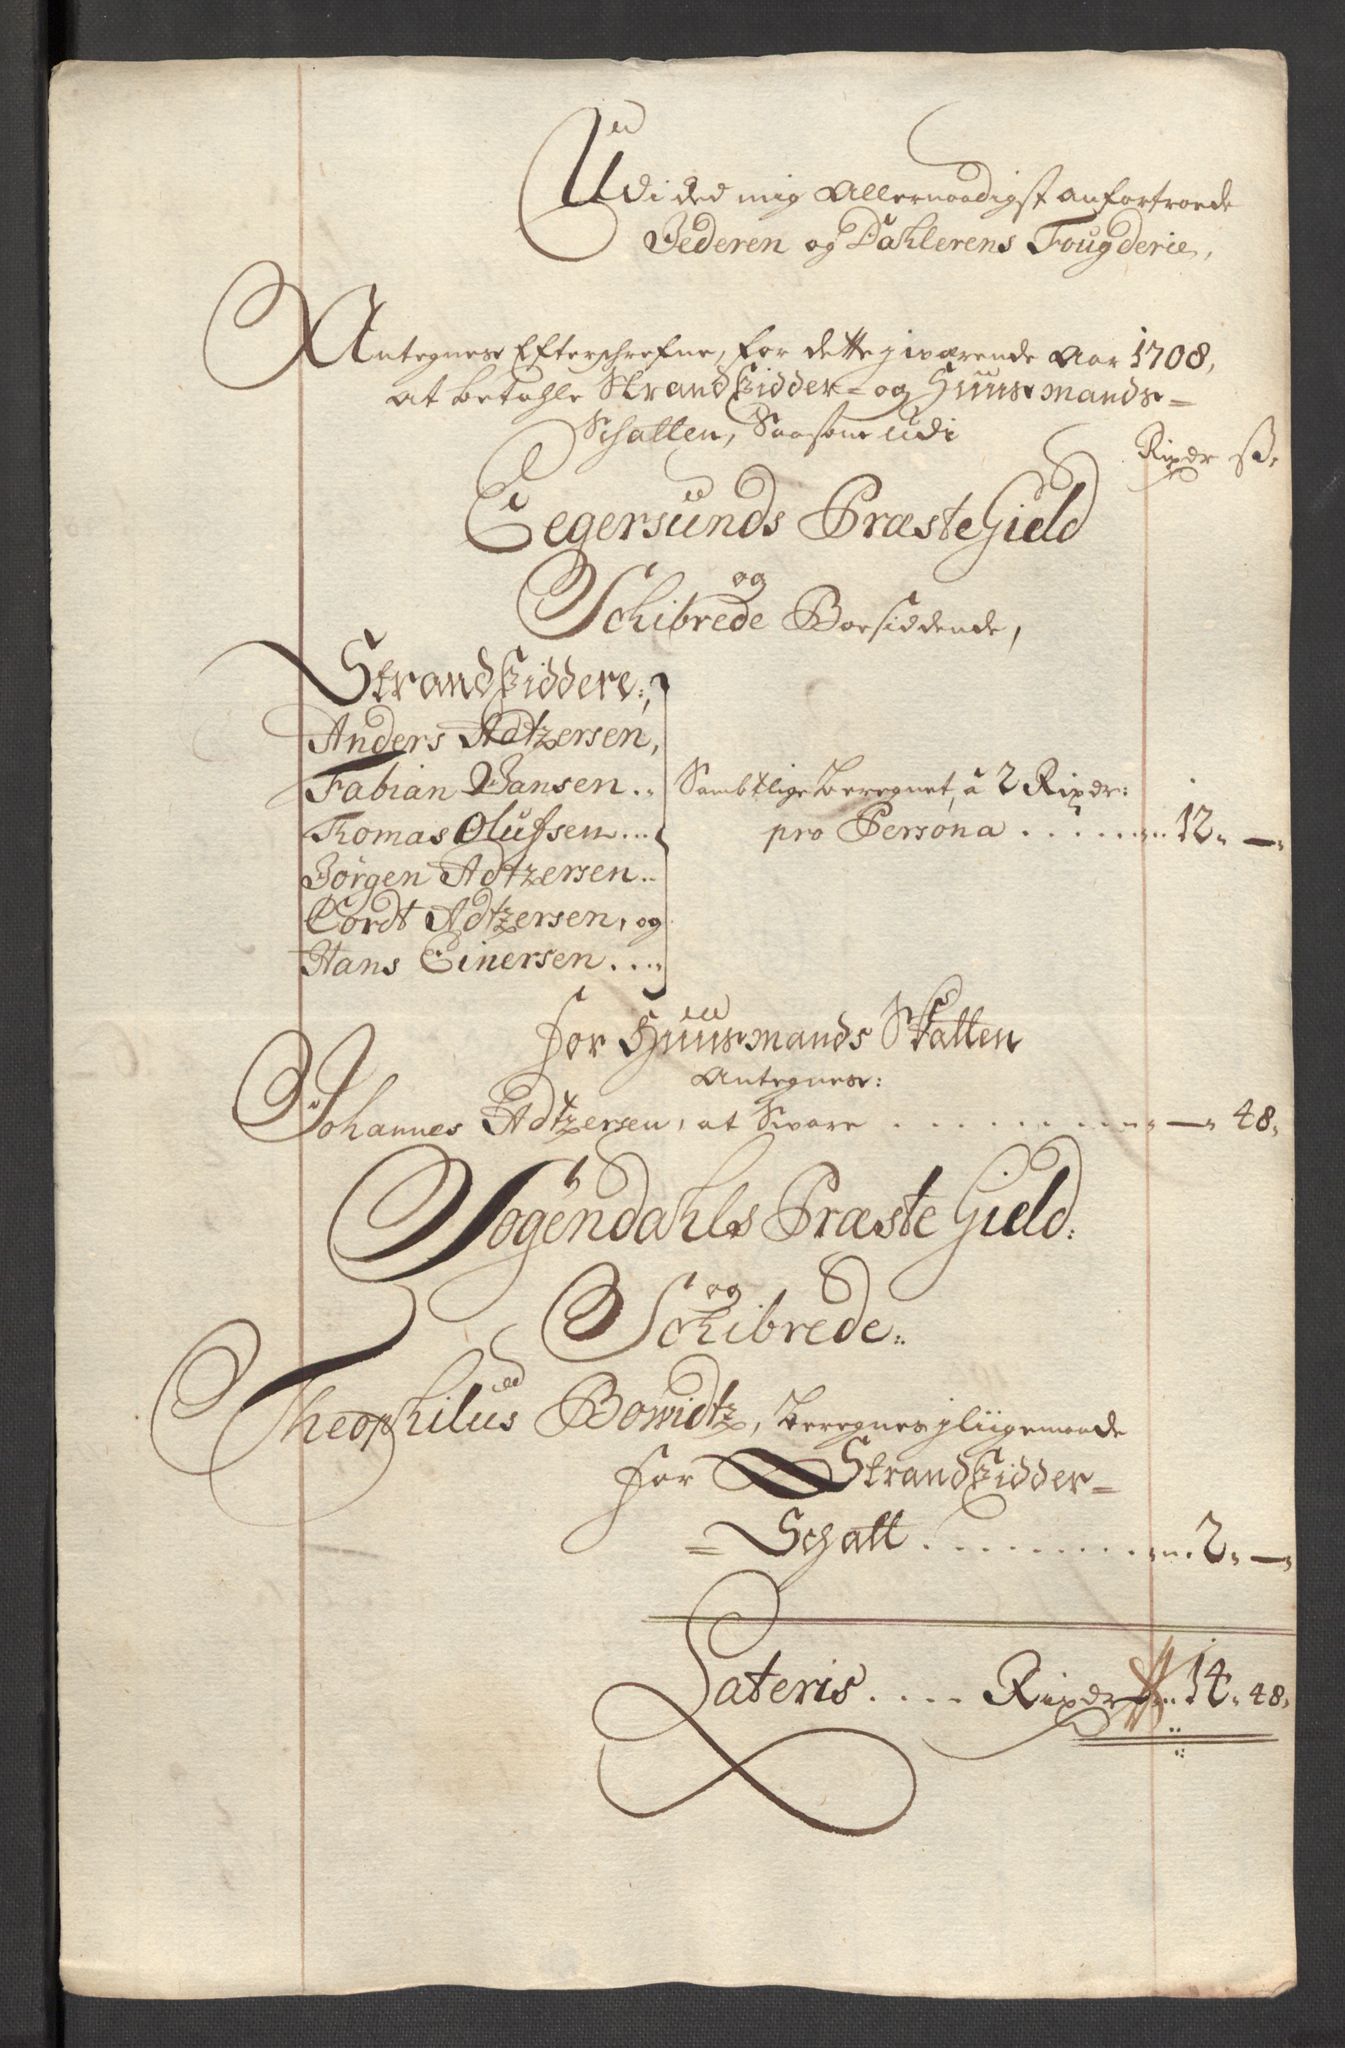 Udi ded mig Allernaadigst anfortroede
Jederen og Dahlerens Fougderie,
Antegnes Efterschrefne, for dette jiværende Aar 1708,
at betahle Strandsidder- og Huusmands-
Schatten, Saasom udi
Rixdr ß.
Eegersunds PræsteGield
og
Schibrede Boesiddende,
Strandsiddere;
Anders Adtzersen,
Fabian Jansen..
Thomas Olufsen...
Jørgen Adtzersen..
Cordt Adtzersen, og
Hans Einersen....
Sambtlige beregnet, à 2 Rixdr:
pro Persona ......... 12. —
for Huusmands Skatten
Antegnes:
Johannes Adtzersen, at Svare ......... — 48.
Sogendahls Præste Gield:
og
Schibrede:
Theophilus Bowidtz, beregnes jliigemaade
for Strandsidder-
= Schatt ......... 2. —
Lateris .... Rixdr 14. 48.